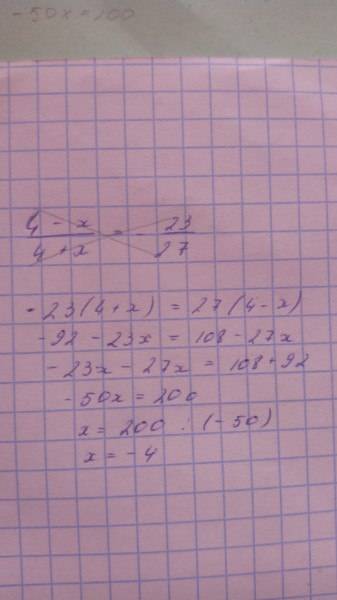 -50x=200
4 - x / 4 + x = - 23 / 27
-23(4+x) = 27(4-x)
-92 - 23x = 108-27x
-23x - 27x = 108+92
-50x = 200
x = 200 : (-50)
x = -4